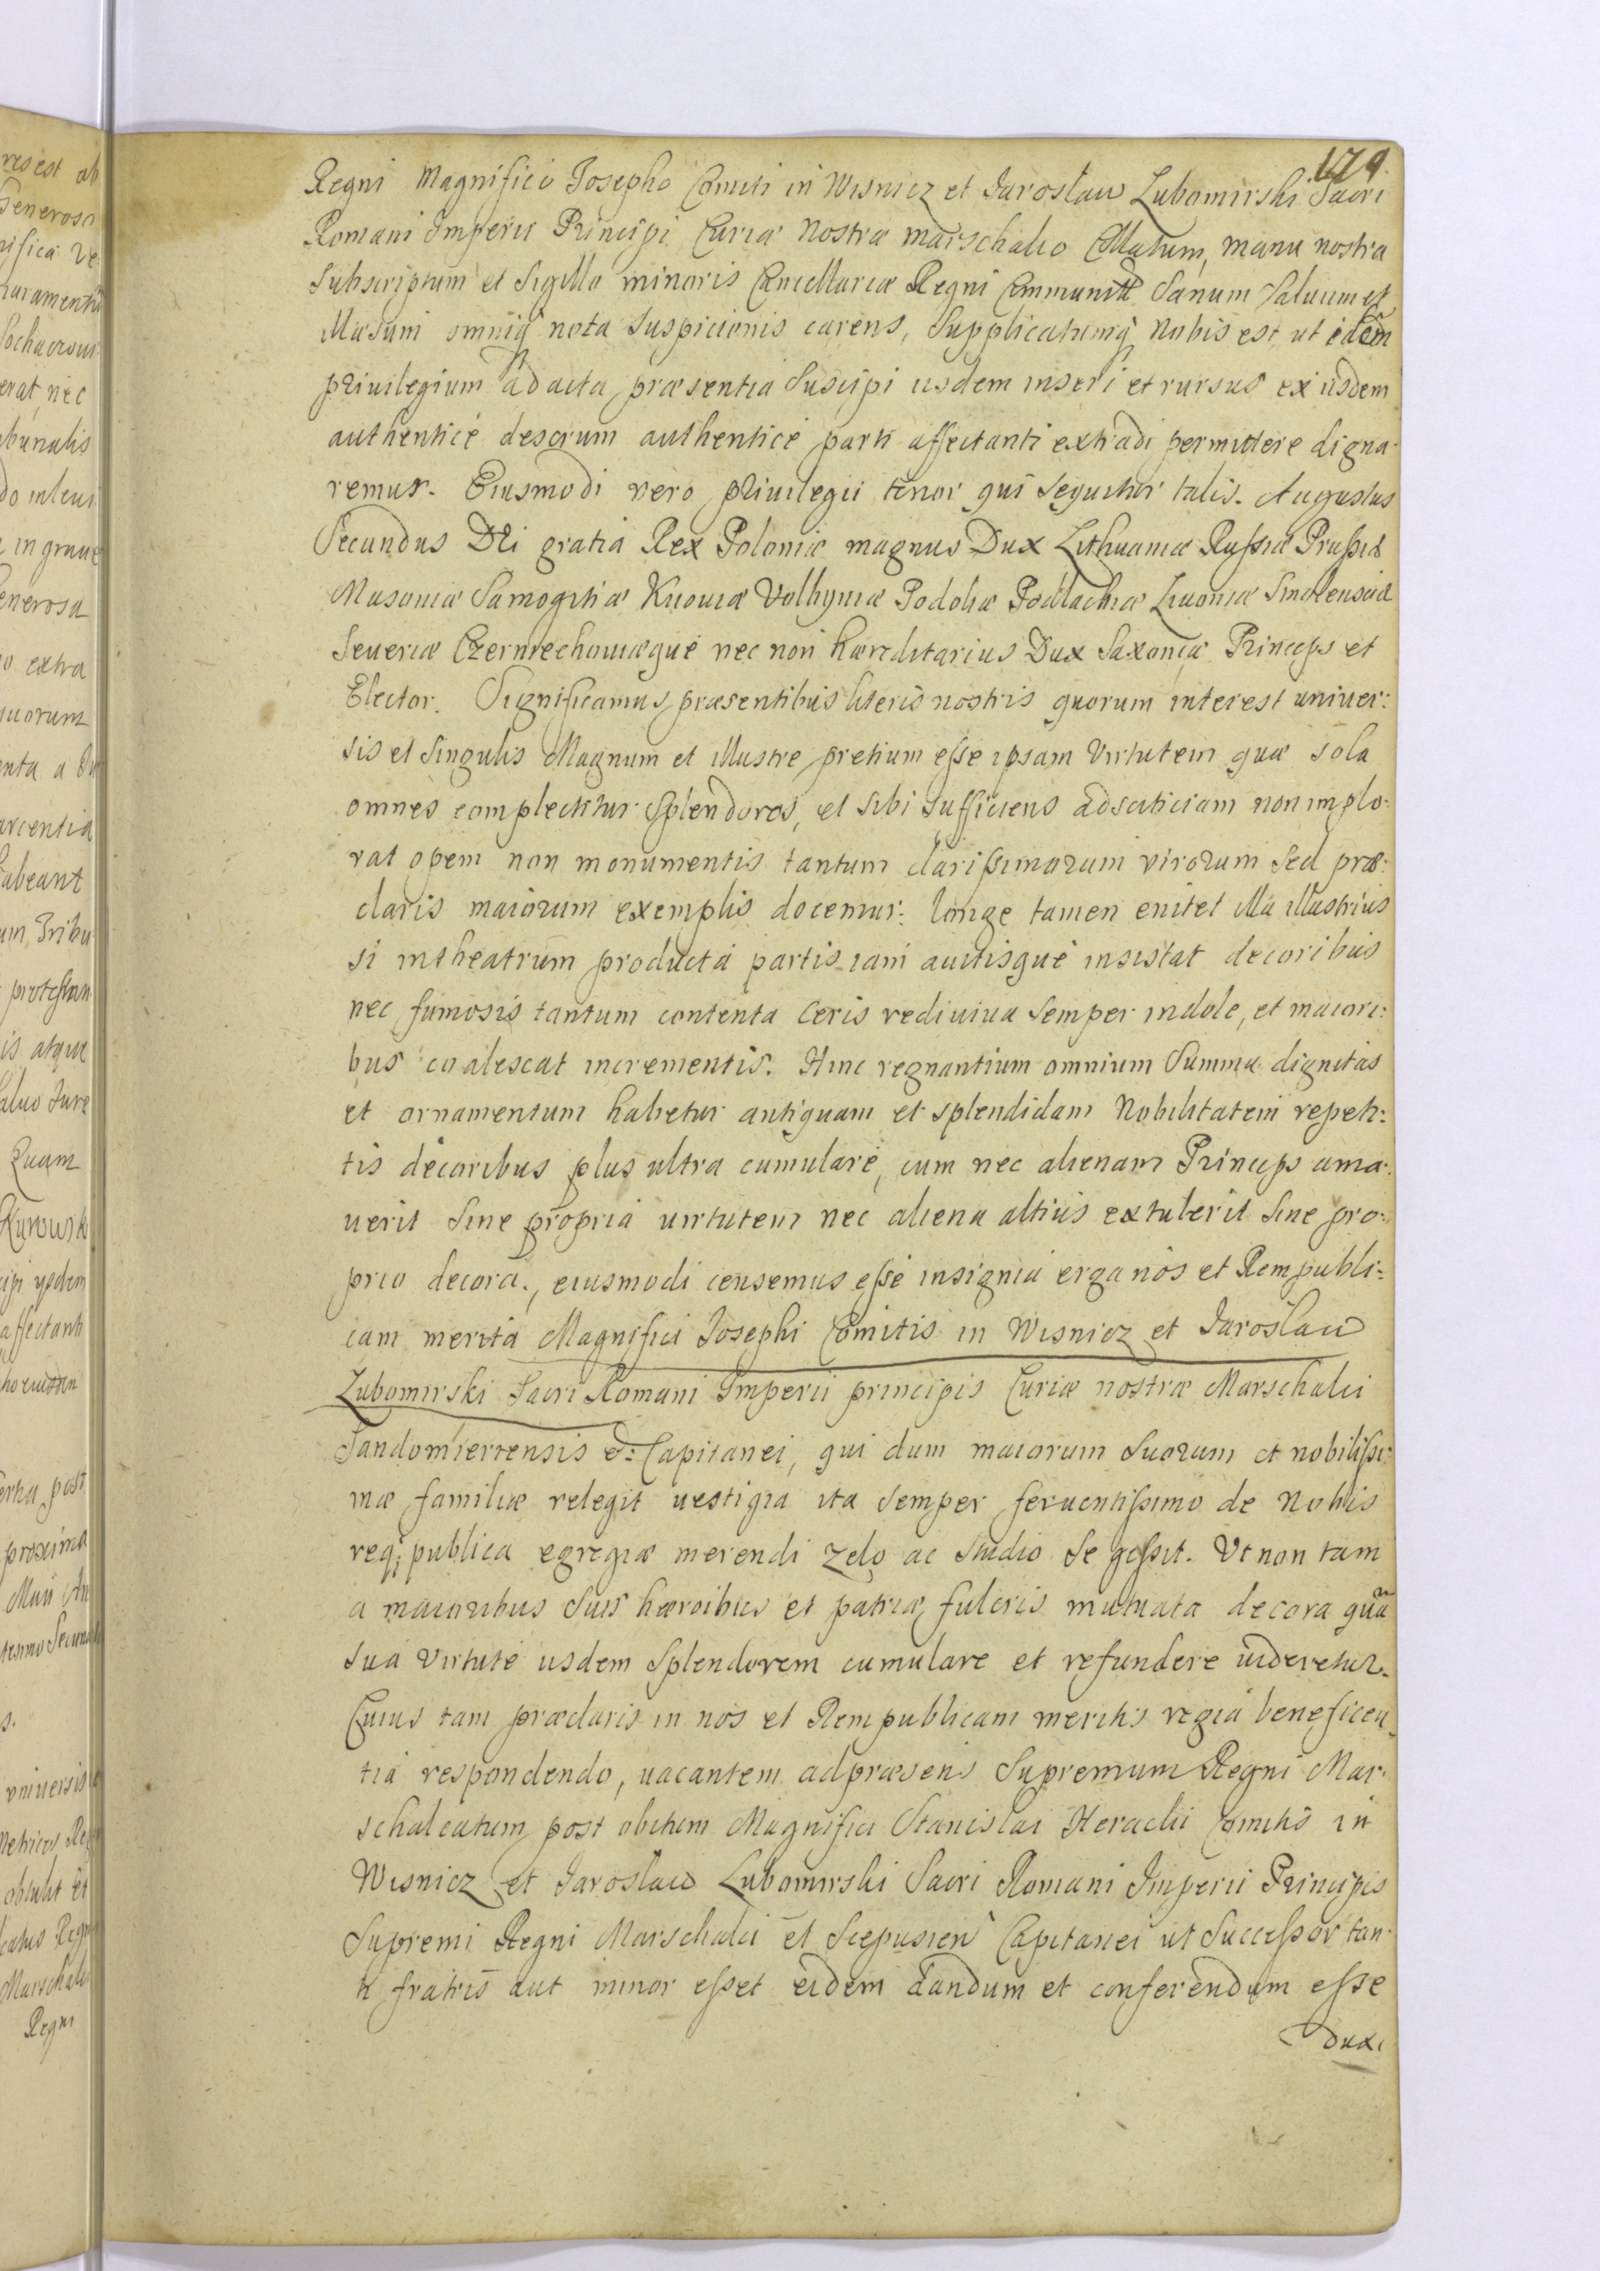 179.
Regni Magnifico Josepho Comiti in Wisnicz et Jaroslaw Lubomirski Sacri
Romani Imperii Principi Curiæ Nostræ Marschalco Collatum, manu nostra
Subscriptum et Sigillo minoris Cancellariæ Regni Communitū Sanum Salvum et
illæsum omniq̓ nota suspicionis carens, Supplicatumq̓ Nobis est, ut idem̃
privilegium ad acta præsentia Suscipi iisdem inseri et rursus ex iisdem
authenticè descrum authenticè parti affectanti extradi permittere digna-
remur. Eiusmodi vero privilegii tenor qui sequitur talis. Augustus
Secundus DEi gratia Rex Poloniæ magnus Dux Lithuaniæ Russiæ Prussiæ
Masoviæ Samogitiæ Kijoviæ Volhyniæ Podoliæ Podlachiæ Livoniæ Smolensciæ
Severiæ Czerniechoviæque nec non hæreditarius Dux Saxoniæ Princeps et
Elector. Significamus præsentibus literis nostris quorum interest univer:
sis et singulis Magnum et illustre pretium esse ipsam Virtutem quæ sola
omnes complectitur Splendores, et sibi sufficiens adscititiam non implo:
rat opem non monumentis tantum clarissimorum virorum sed præ:
claris maiorum exemplis docemur: longe tamen enitet illa illustrius
si in theatrum producta partis iam avitisque insistat decoribus
nec fumosis tantum contenta Ceris rediviva semper indole, et maiori:
bus coalescat incrementis. Hinc regnantium omnium Summa dignitas
et ornamentum habetur antiquam et splendidam Nobilitatem repeti:
tis decoribus plus ultra cumulare, cum nec alienam Princeps ama:
verit sine propria virtutem nec aliena altius extulerit sine pro:
prio decora., eiusmodi censemus esse insignia erga nos et Rempubli:
cam merita Magnifici Josephi Comitis in Wisnicz et Jaroslaw
Lubomirski Sacri Romani Imperii principis Curiæ nostræ Marschalci
Sandomiercensis et: Capitanei, qui dum maiorum suorum et nobilissi:
mæ familiæ relegit vestigia ita semper ferventissimo de Nobis
req; publica egregiæ merendi zelo ac studio se gessit. Ut non tam
a maioribus suis hæroibus et patriæ fulcris mutuata decora quã
sua Virtute iisdem Splendorem cumulare et refundere videretur.
Cuius tam præclaris in nos et Rempublicam meritis regia beneficen
tia respondendo, vacantem ad præsens Supremum Regni Mar:
schalcatum post obitum Magnifici Stanislai Heraclii Comitis in
Wisnicz et Jaroslaw Lubomirski Sacri Romani Imperii Principis
Supremi Regni Marschalci et Scepusien̄ Capitanei ut Successor tan:
ti fratris aut minor esset eidem dandum et conferendum esse
duxi